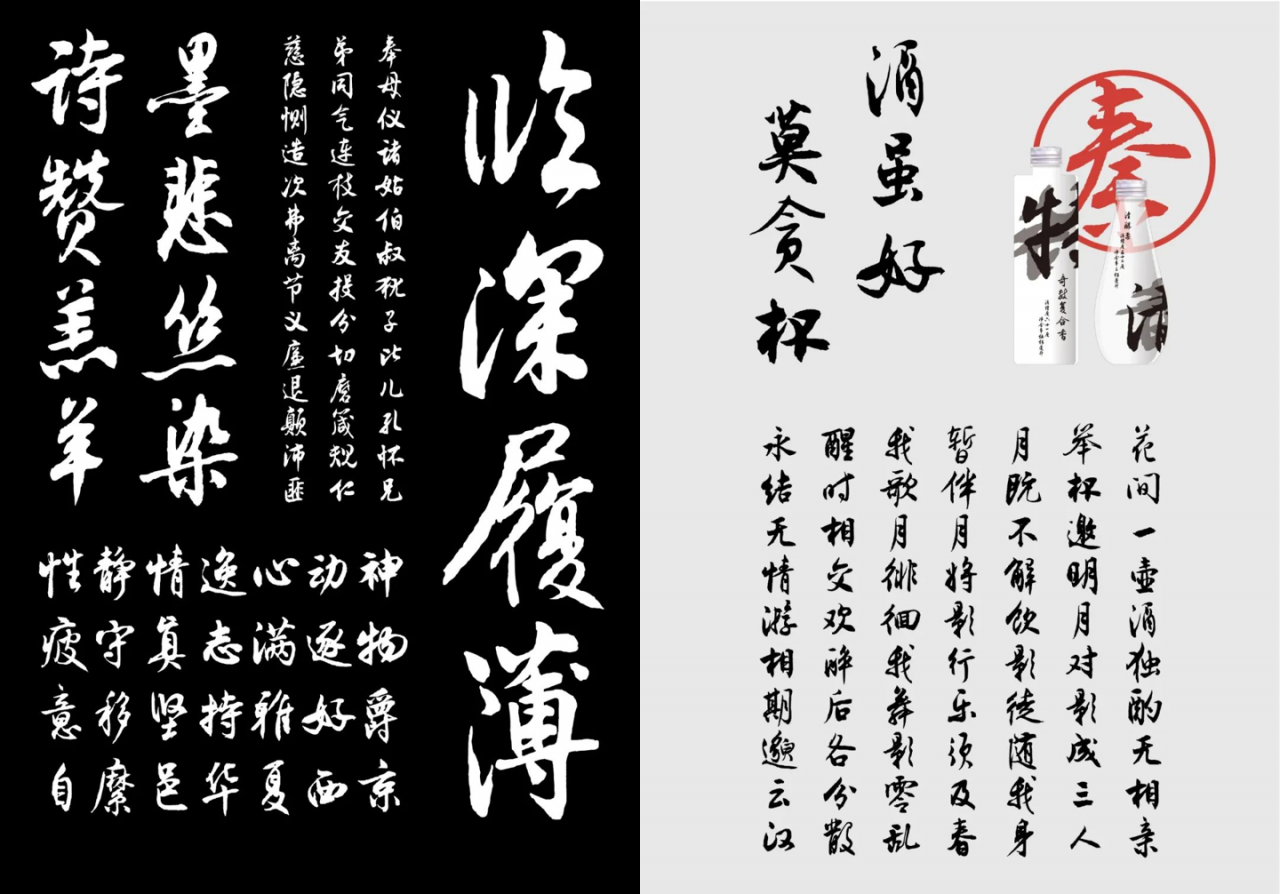 临深履薄
奉母仪诸姑伯叔犹子比儿孔怀兄
弟同气连枝交友投分切磨箴规仁
慈隐恻造次弗离节义廉退颠沛匪
墨悲丝染
诗赞羔羊
性静情逸心动神
疲守真志满逐物
意移坚持雅好爵
自縻邑华夏西京
酒虽好
莫贪杯
特
清
花间一壶酒独酌无相亲
举杯邀明月对影成三人
月既不解饮影徒随我身
暂伴月将影行乐须及春
我歌月徘徊我舞影零乱
醒时相交欢醉后各分散
永结无情游相期邈云汉